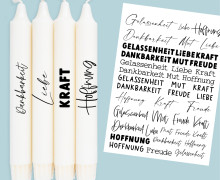 Dankbarkeit
Liebe
KRAFT
Hoffnung
Gelassenheit Liebe Hoffnung
Dankbarkeit Mut Liebe
GELASSENHEIT LIEBE KRAFT
DANKBARKEIT MUT FREUDE
Gelassenheit Liebe Kraft
Dankbarkeit Mut Hoffnung
GELASSENHEIT MUT KRAFT
DANKBARKEIT FREUDE LIEBE
Hoffnung Kraft Freude
Gelassenheit Mut Freude Kraft
Dankbarkeit Liebe Mut Freude Kraft
HOFFNUNG DANKBARKEIT
HOFFNUNG Freude Gelassenheit